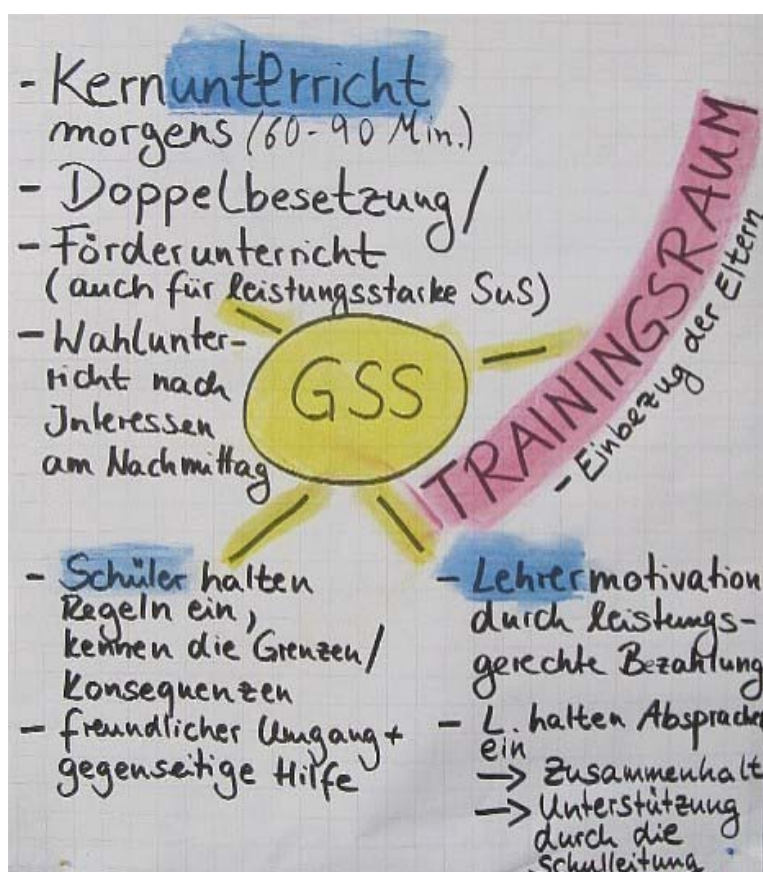 - Kernunterricht
morgens (60-90 Min.)
- Doppelbesetzung/
- Förderunterricht
(auch für leistungsstarke SuS)
- Wahlunter-
richt nach
Interessen
am Nachmittag
GSS
TRAININGSRAUM
- Einbezug der Eltern
- Schüler halten
Regeln ein,
kennen die Grenzen/
Konsequenzen
- freundlicher Umgang +
gegenseitige Hilfe
- Lehrermotivation
durch leistungs-
gerechte Bezahlung
- L. halten Absprachen
ein
-> Zusammenhalt
-> Unterstützung
durch die
Schulleitung